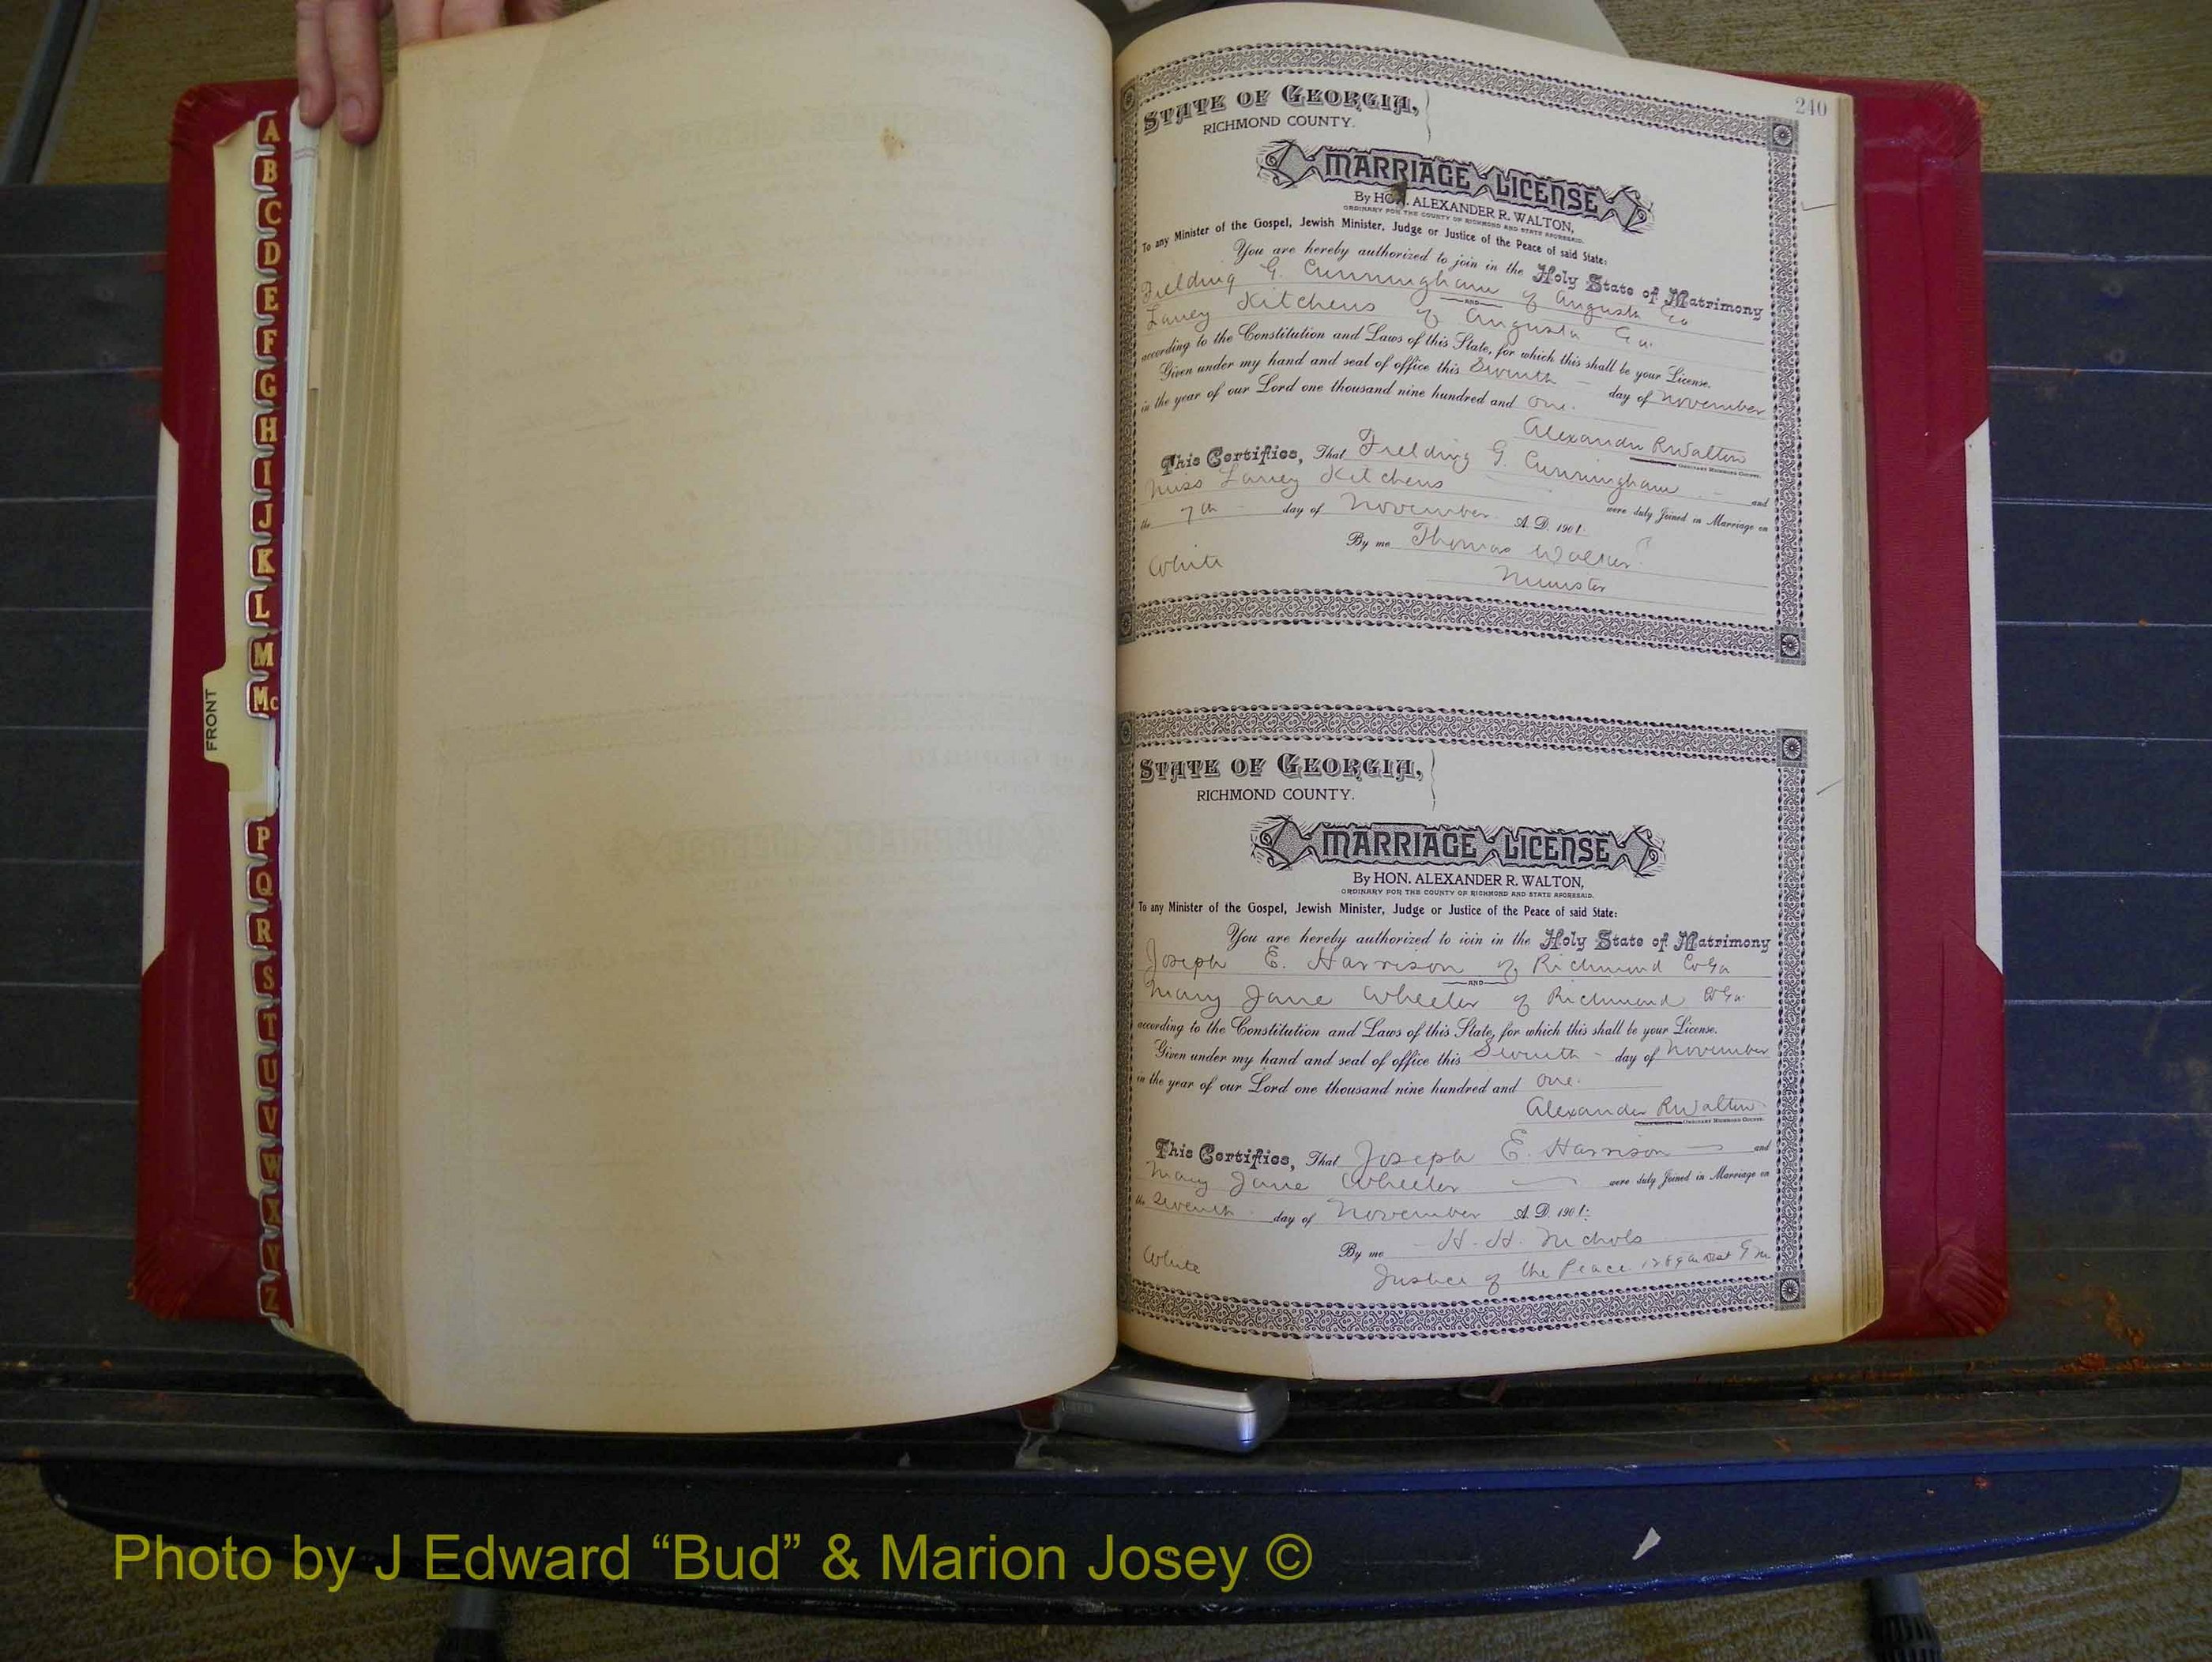 A
B
C
D
E
F
G
H
I
J
K
L
M
Mc
FRONT
P
Q
R
S
T
U
V
W
X
Y
Z
240
STATE OF GEORGIA,
RICHMOND COUNTY.
MARRIAGE LICENSE
By HON. ALEXANDER R. WALTON,
ORDINARY FOR THE COUNTY OF RICHMOND AND STATE AFORESAID.
To any Minister of the Gospel, Jewish Minister, Judge or Justice of the Peace of said State:
You are hereby authorized to join in the Holy State of Matrimony
Fielding G. Cunningham of Augusta Ga
AND
Laney Kitchens of Augusta Ga.
according to the Constitution and Laws of this State, for which this shall be your License.
Given under my hand and seal of office this Seventh - day of November
in the year of our Lord one thousand nine hundred and one.
Alexander R Walton
ORDINARY RICHMOND COUNTY.
This Certifies, That Fielding G. Cunningham - and
Miss Laney Kitchens were duly Joined in Marriage on
the 7th - day of November A. D. 1901.
By me Thomas Walker
White Minister
STATE OF GEORGIA,
RICHMOND COUNTY.
MARRIAGE LICENSE
By HON. ALEXANDER R. WALTON,
ORDINARY FOR THE COUNTY OF RICHMOND AND STATE AFORESAID.
To any Minister of the Gospel, Jewish Minister, Judge or Justice of the Peace of said State:
You are hereby authorized to join in the Holy State of Matrimony
Joseph E. Harrison of Richmond Co Ga
AND
Mary Jane Wheeler of Richmond Co Ga
according to the Constitution and Laws of this State, for which this shall be your License.
Given under my hand and seal of office this Seventh - day of November
in the year of our Lord one thousand nine hundred and one.
Alexander R Walton
ORDINARY RICHMOND COUNTY.
This Certifies, That Joseph E. Harrison and
Mary Jane Wheeler were duly Joined in Marriage on
the Seventh day of November A. D. 1901.
By me H. H. Nichols
White Justice of the Peace G M
Photo by J Edward “Bud” & Marion Josey ©